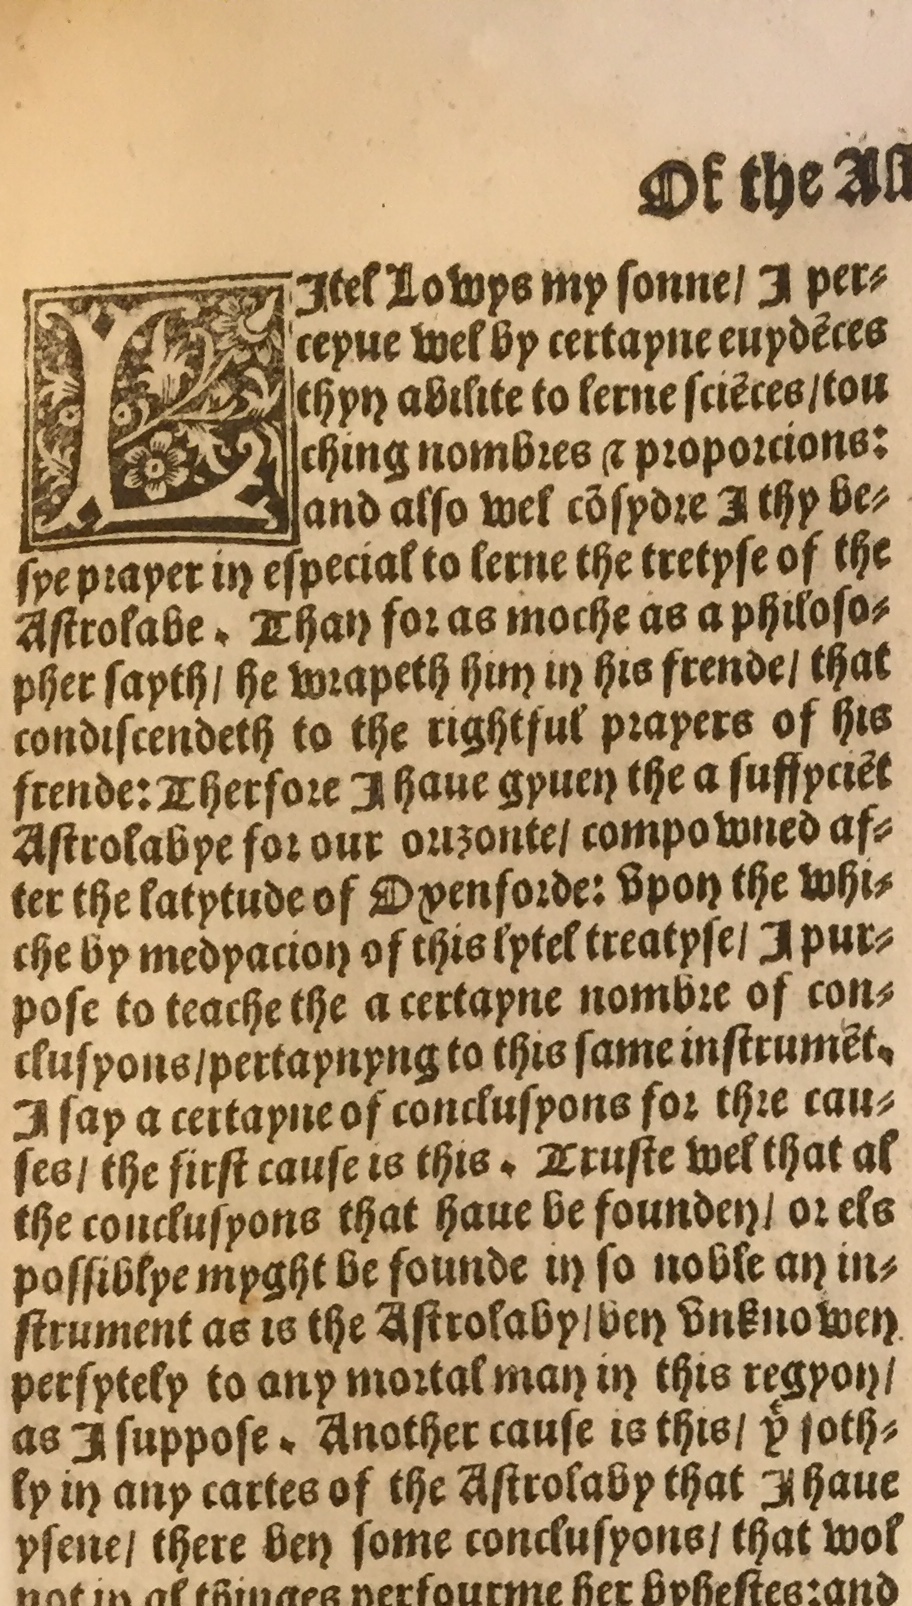 Of the Aſt
LItel Lowys my ſonne/ I per⸗
ceyue wel by certayne euydēces
thyn abilite to lerne ſciēces/tou
ching nombres ⁊ proporcions:
and alſo wel cōſydre I thy be⸗
ſye prayer in eſpecial to lerne the tretyſe of the
Aſtrolabe. Than for as moche as a philoſo⸗
pher ſayth/ he wrapeth him in his frende/ that
condiſcendeth to the rightful prayers of his
frende: Therfore I haue gyuen the a ſuffyciēt
Aſtrolabye for our orizonte/ compowned af⸗
ter the latytude of Oxenforde: vpon the whi⸗
che by medyacion of this lytel treatyſe/ I pur⸗
poſe to teache the a certayne nombre of con⸗
cluſyons/pertaynyng to this ſame inſtrumēt.
I ſay a certayne of concluſyons for thre cau⸗
ſes/ the firſt cauſe is this. Truſte wel that al
the concluſyons that haue be founden/ or els
poſſiblye myght be founde in ſo noble an in⸗
ſtrument as is the Aſtrolaby/ben vnknowen
perfytely to any mortal man in this regyon/
as I ſuppoſe. Another cauſe is this/ yͭ ſoth⸗
ly in any cartes of the Aſtrolaby that I haue
yſene/ there ben ſome concluſyons/ that wol
not in al thinges perfourme her byheſtes: and